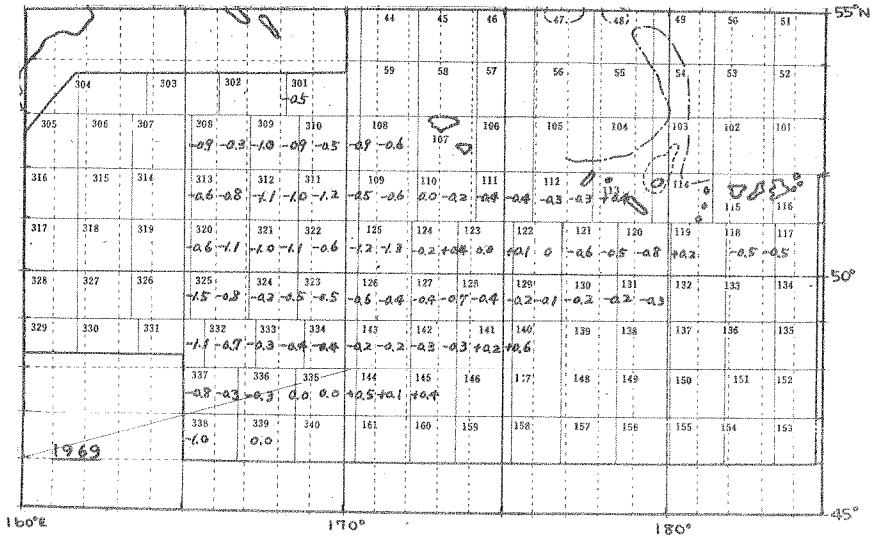 55°N
44 45 46 47 48 49 50 51
59 58 57 56 55 54 53 52
304 303 302 301
-0.5
305 306 307 308 309 310 108 107 106 105 104 103 102 101
-0.9 -0.3 -1.0 -0.9 -0.5 -0.9 -0.6
316 315 314 313 312 311 109 110 111 112 113 114 115 116
-0.6 -0.8 -1.1 -1.0 -1.2 -0.5 -0.6 0.0 -0.2 -0.4 -0.4 -0.3 -0.3 +0.4
317 318 319 320 321 322 125 124 123 122 121 120 119 118 117
-0.6 -1.1 -1.0 -1.1 -0.6 -1.2 -1.3 -0.2 +0.4 0.0 +0.1 0 -0.6 -0.5 -0.8 +0.2 -0.5 -0.5
50°
328 327 326 325 324 323 126 127 128 129 130 131 132 133 134
-1.5 -0.8 -0.2 -0.5 -0.5 -0.6 -0.4 -0.4 -0.7 -0.4 -0.2 -0.1 -0.2 -0.2 -0.3
329 330 331 332 333 334 143 142 141 140 139 138 137 136 135
-1.1 -0.7 -0.3 -0.4 -0.4 -0.2 -0.2 -0.3 -0.3 +0.2 +0.6
337 336 335 144 145 146 147 148 149 150 151 152
-0.8 -0.3 -0.3 0.0 0.0 +0.5 +0.1 +0.4
338 339 340 161 160 159 158 157 156 155 154 153
-1.0 0.0
1969
45°
160°E 170° 180°